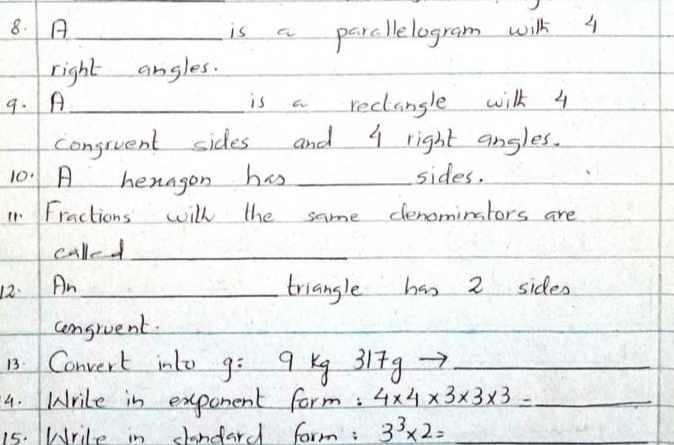 8. A ________ is a parallelogram with 4
right angles.
9. A ________ is a rectangle with 4
congruent sides and 4 right angles.
10. A hexagon has ________ sides.
11. Fractions with the same denominators are
called ________
12. An ________ triangle has 2 sides
congruent.
13. Convert into g: 9 kg 317g → ________
4. Write in exponent form : 4x4 x 3x3x3 = ________
15. Write in standard form : 3³x2= ________